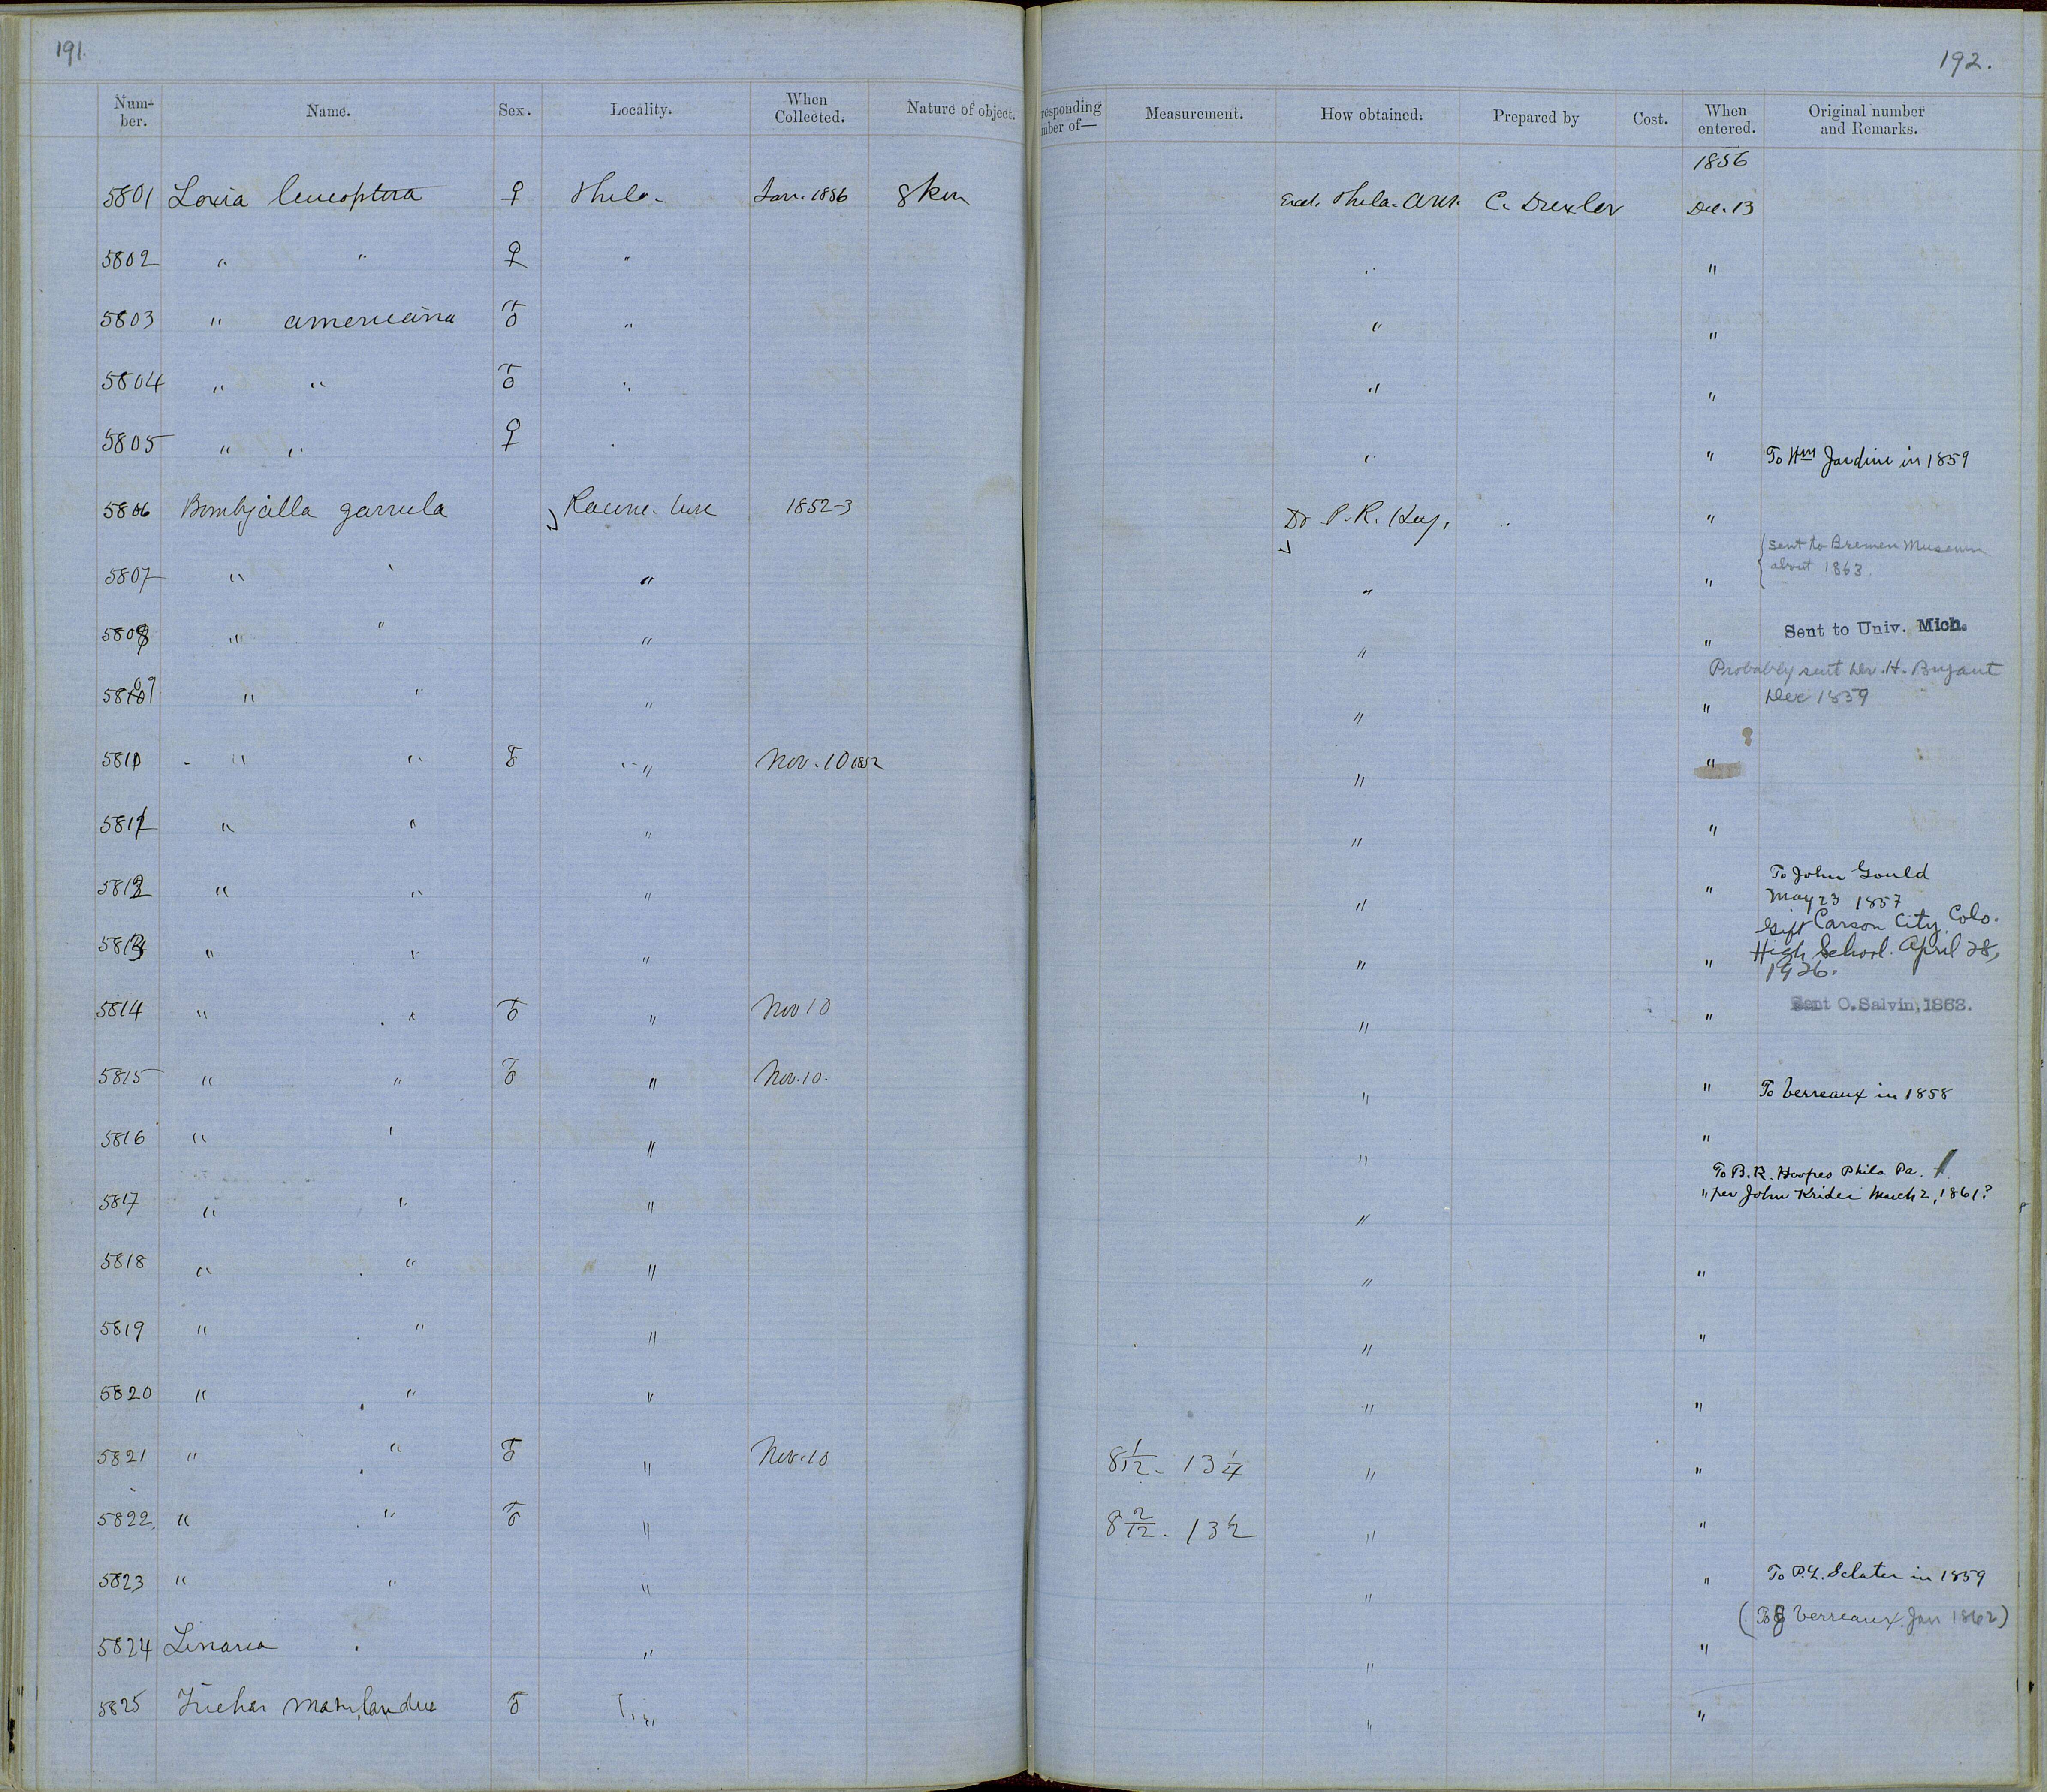 191.
192.
Num-ber. Name. Sex. Locality. When Collected. Nature of object. responding mber of— Measurement. How obtained. Prepared by Cost. When entered. Original number and Remarks.
1856
5801 Loxia leucoptera ♀ Phila. Jan. 1856 Skin Phila. C. Drexler Dec. 13
5802 " " ♀ " " "
5803 " americana ♂ " " "
5804 " " ♂ " " "
5805 " " ♀ " " " To Wm Jardine in 1859
5806 Bombycilla garrula Racine. Wisc 1852-3 Dr. P. R. Hoy. "
{ sent to Bremen Museum
5807 " " " " " about 1863.
5808 " " " " " Sent to Univ. Mich.
Probably sent Dr. H. Bryant
5809 " " " " " Dec 1859
5810 " " ♂ " Nov. 10 1852 " "
5811 " " " " "
5812 " " " " " To John Gould
May 23 1857
Gift Carson City, Colo.
5813 " " " " " High School. April 28,
1926.
5814 " " ♂ " Nov 10 " " Sent O. Salvin, 1863.
5815 " " ♂ " Nov. 10. " " To Verreaux in 1858
5816 " " " " "
To B. R. Hoopes Phila Pa.
5817 " " " " " per John Krider March 2, 1861?
5818 " " " " "
5819 " " " " "
5820 " " " " "
5821 " " ♂ " Nov. 10 8 1/12. 13 1/4 " "
5822 " " ♂ " 8 2/12. 13 1/2 " "
5823 " " " " " To P. L. Sclater in 1859
(To J Verreaux. Jan 1862)
5824 Linaria " " "
5825 Trichas Marylandica ♂ " " "